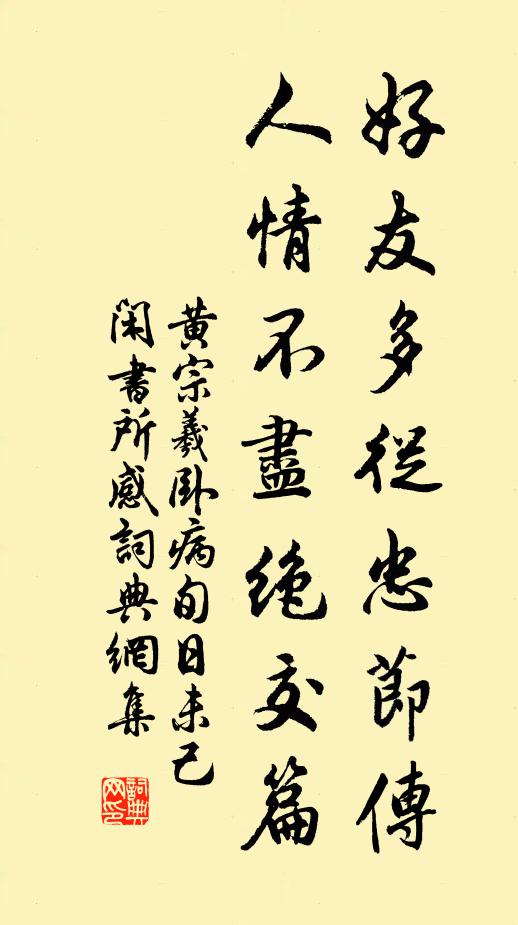 好友多從忠節傳
人情不盡絶交篇
黄宗羲卧病旬日未已
閑書所感詞典網集
詞典网印